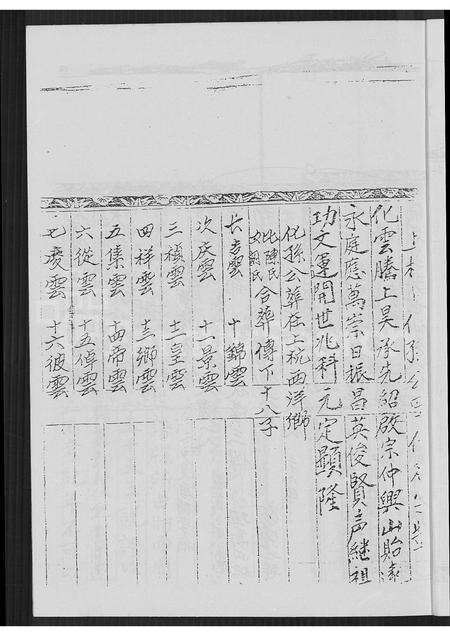 化雲騰上昊承先詔啟宗仲興山貽遠
永庭應萬崇日振昌英俊賢声継祖
功文運開世兆科元定顯隆
化孫公葬在上杭西洋鄉
妣陳氏
氏合葬傳下十八子
長吉雲 十錦雲
次慶雲 十一景雲
三禎雲 十二皇雲
四祥雲 十三鄉雲
五集雲 十四帝雲
六從雲 十五偉雲
七慶雲 十六彼雲